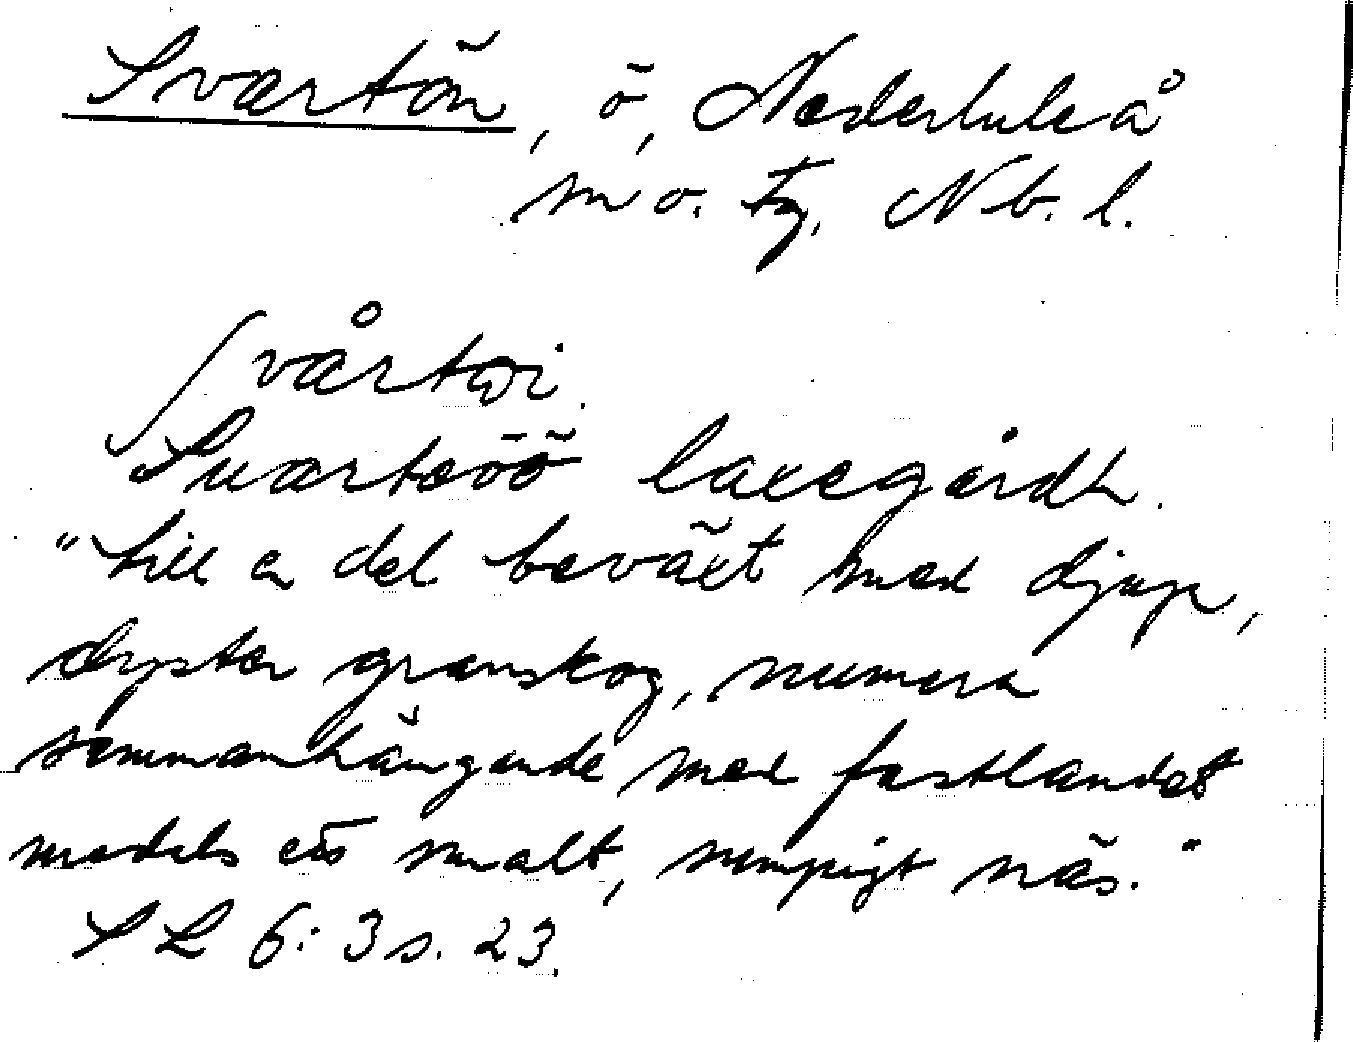 Svartön, ö, Nederluleå
sn o. tg, Nb. l.
Svårtöi.
Suarteöö laxegårdh.
"till en del beväxt med djup,
dyster granskog, numera
sammanhängande med fastlandet
medels ett smalt, sumpigt näs."
SL 6:3 s. 23.